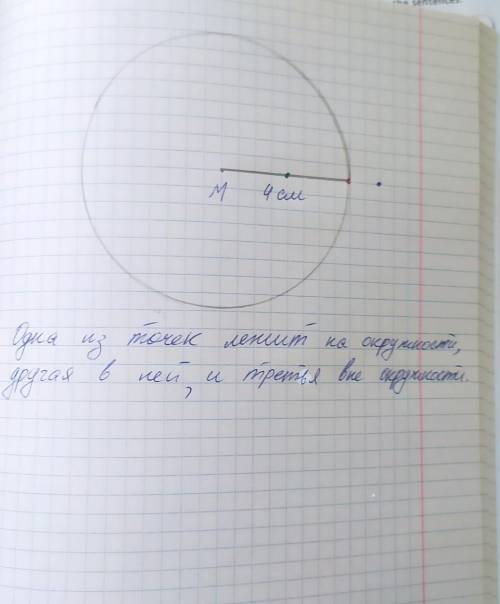 M 4 см
Одна из точек лежит на окружности,
другая в ней, и третья вне окружности.